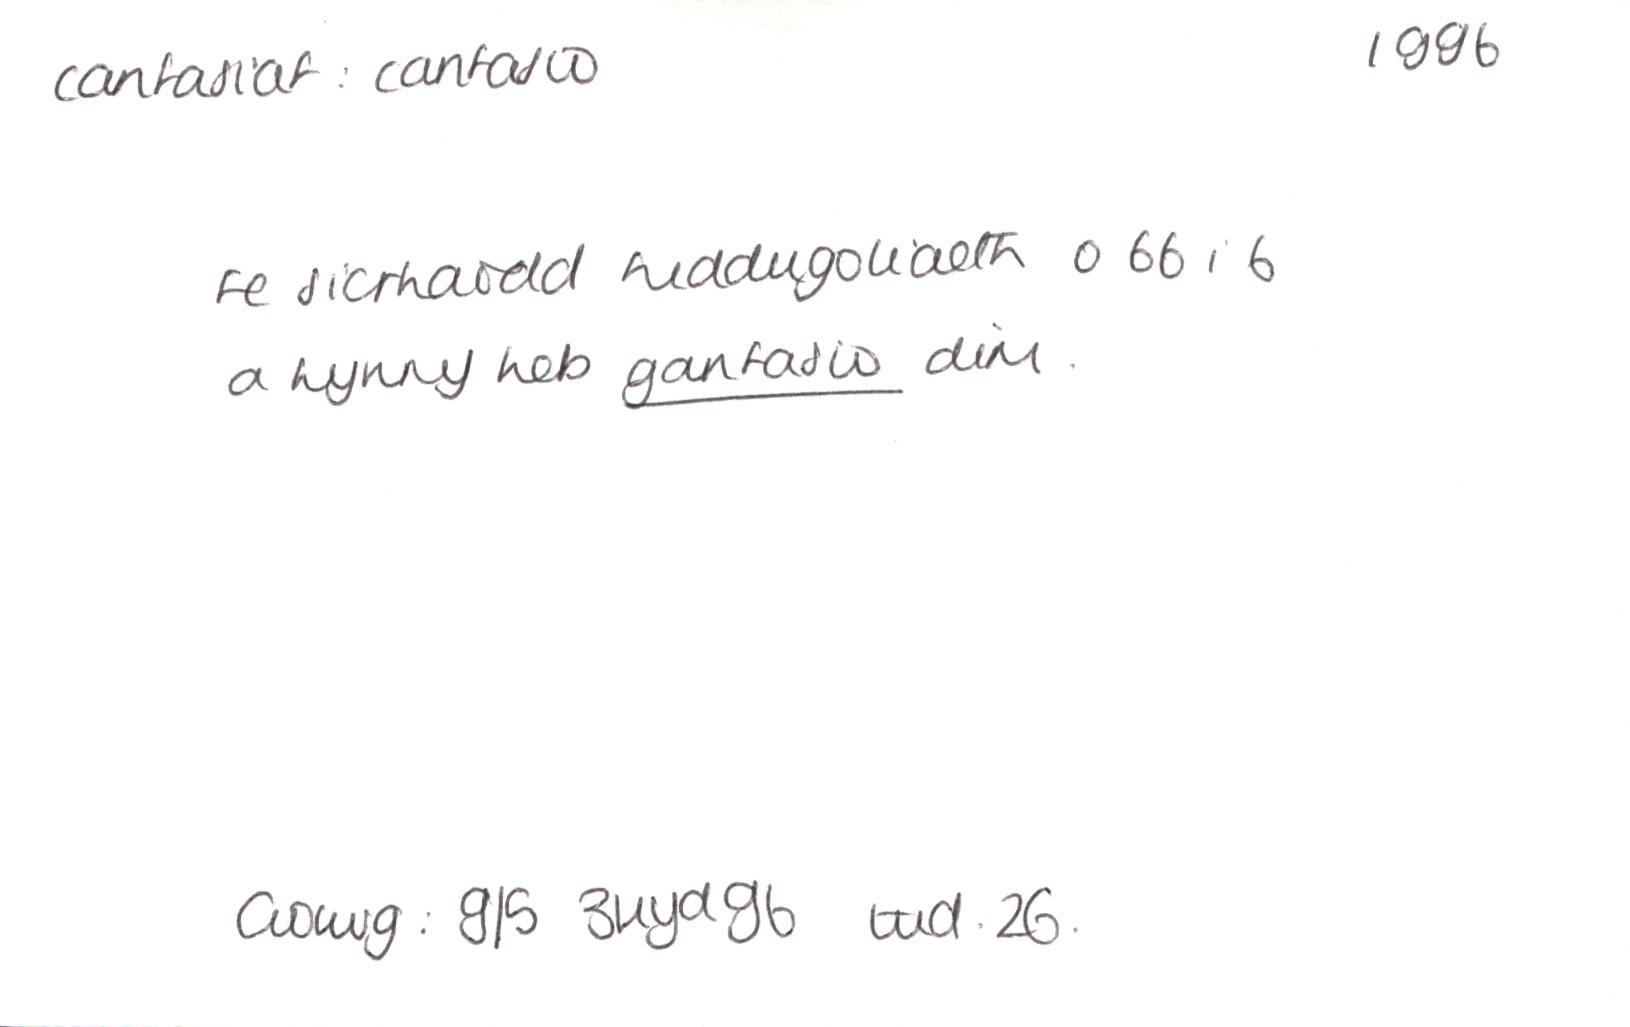 canfasiaf : canfasio 1996
Fe sicrhaodd fuddugoliaeth o 66 i 6
a hynny heb ganfasio dim.
Golwg : 9/5 3Hyd96 tud. 26.